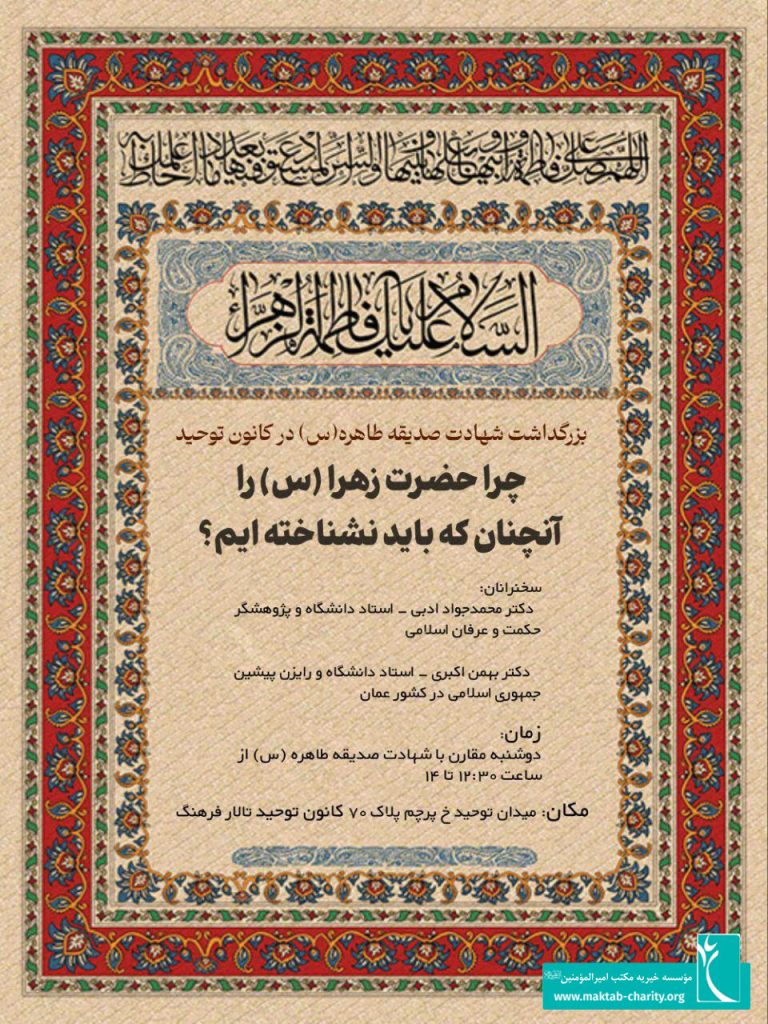 اللهم صل علی فاطمة و ابیها و بعلها و بنیها و السر المستودع فیها بعدد ما احاط به علمک
السلام علیک یا فاطمة الزهراء
بزرگداشت شهادت صدیقه طاهره(س) در کانون توحید
چرا حضرت زهرا (س) را
آنچنان که باید نشناخته ایم؟
سخنرانان:
دکتر محمدجواد ادبی - استاد دانشگاه و پژوهشگر
حکمت و عرفان اسلامی
دکتر بهمن اکبری - استاد دانشگاه و رایزن پیشین
جمهوری اسلامی در کشور عمان
زمان:
دوشنبه مقارن با شهادت صدیقه طاهره (س) از
ساعت ۱۲:۳۰ تا ۱۴
مکان: میدان توحید خ پرچم پلاک ۷۰ کانون توحید تالار فرهنگ
مؤسسه خیریه مکتب امیرالمؤمنین
www.maktab-charity.org